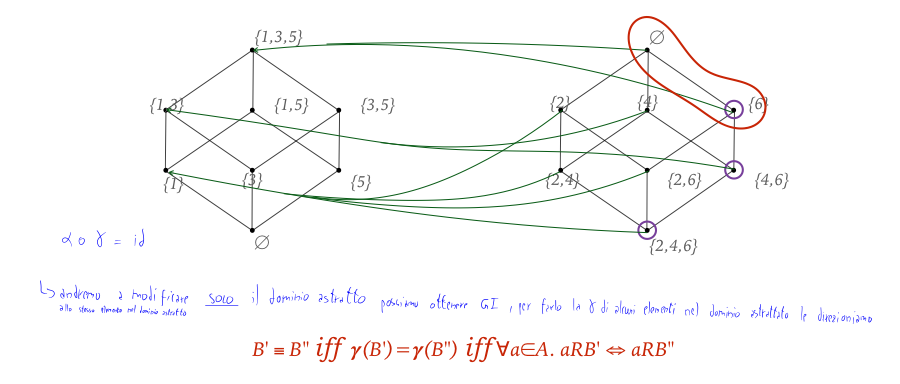 {1,3,5} ∅
{1,3} {1,5} {3,5} {2} {4} {6}
{1} {3} {5} {2,4} {2,6} {4,6}
∅ {2,4,6}
α o γ = id
↳ andremo a modificare solo il dominio astratto possiamo ottenere GI , per farlo la γ di alcuni elementi nel dominio astratto le direzioniamo
allo stesso elemento nel dominio astratto
B' ≡ B" iff γ(B')=γ(B") iff ∀a∈A. aRB' ⇔ aRB"